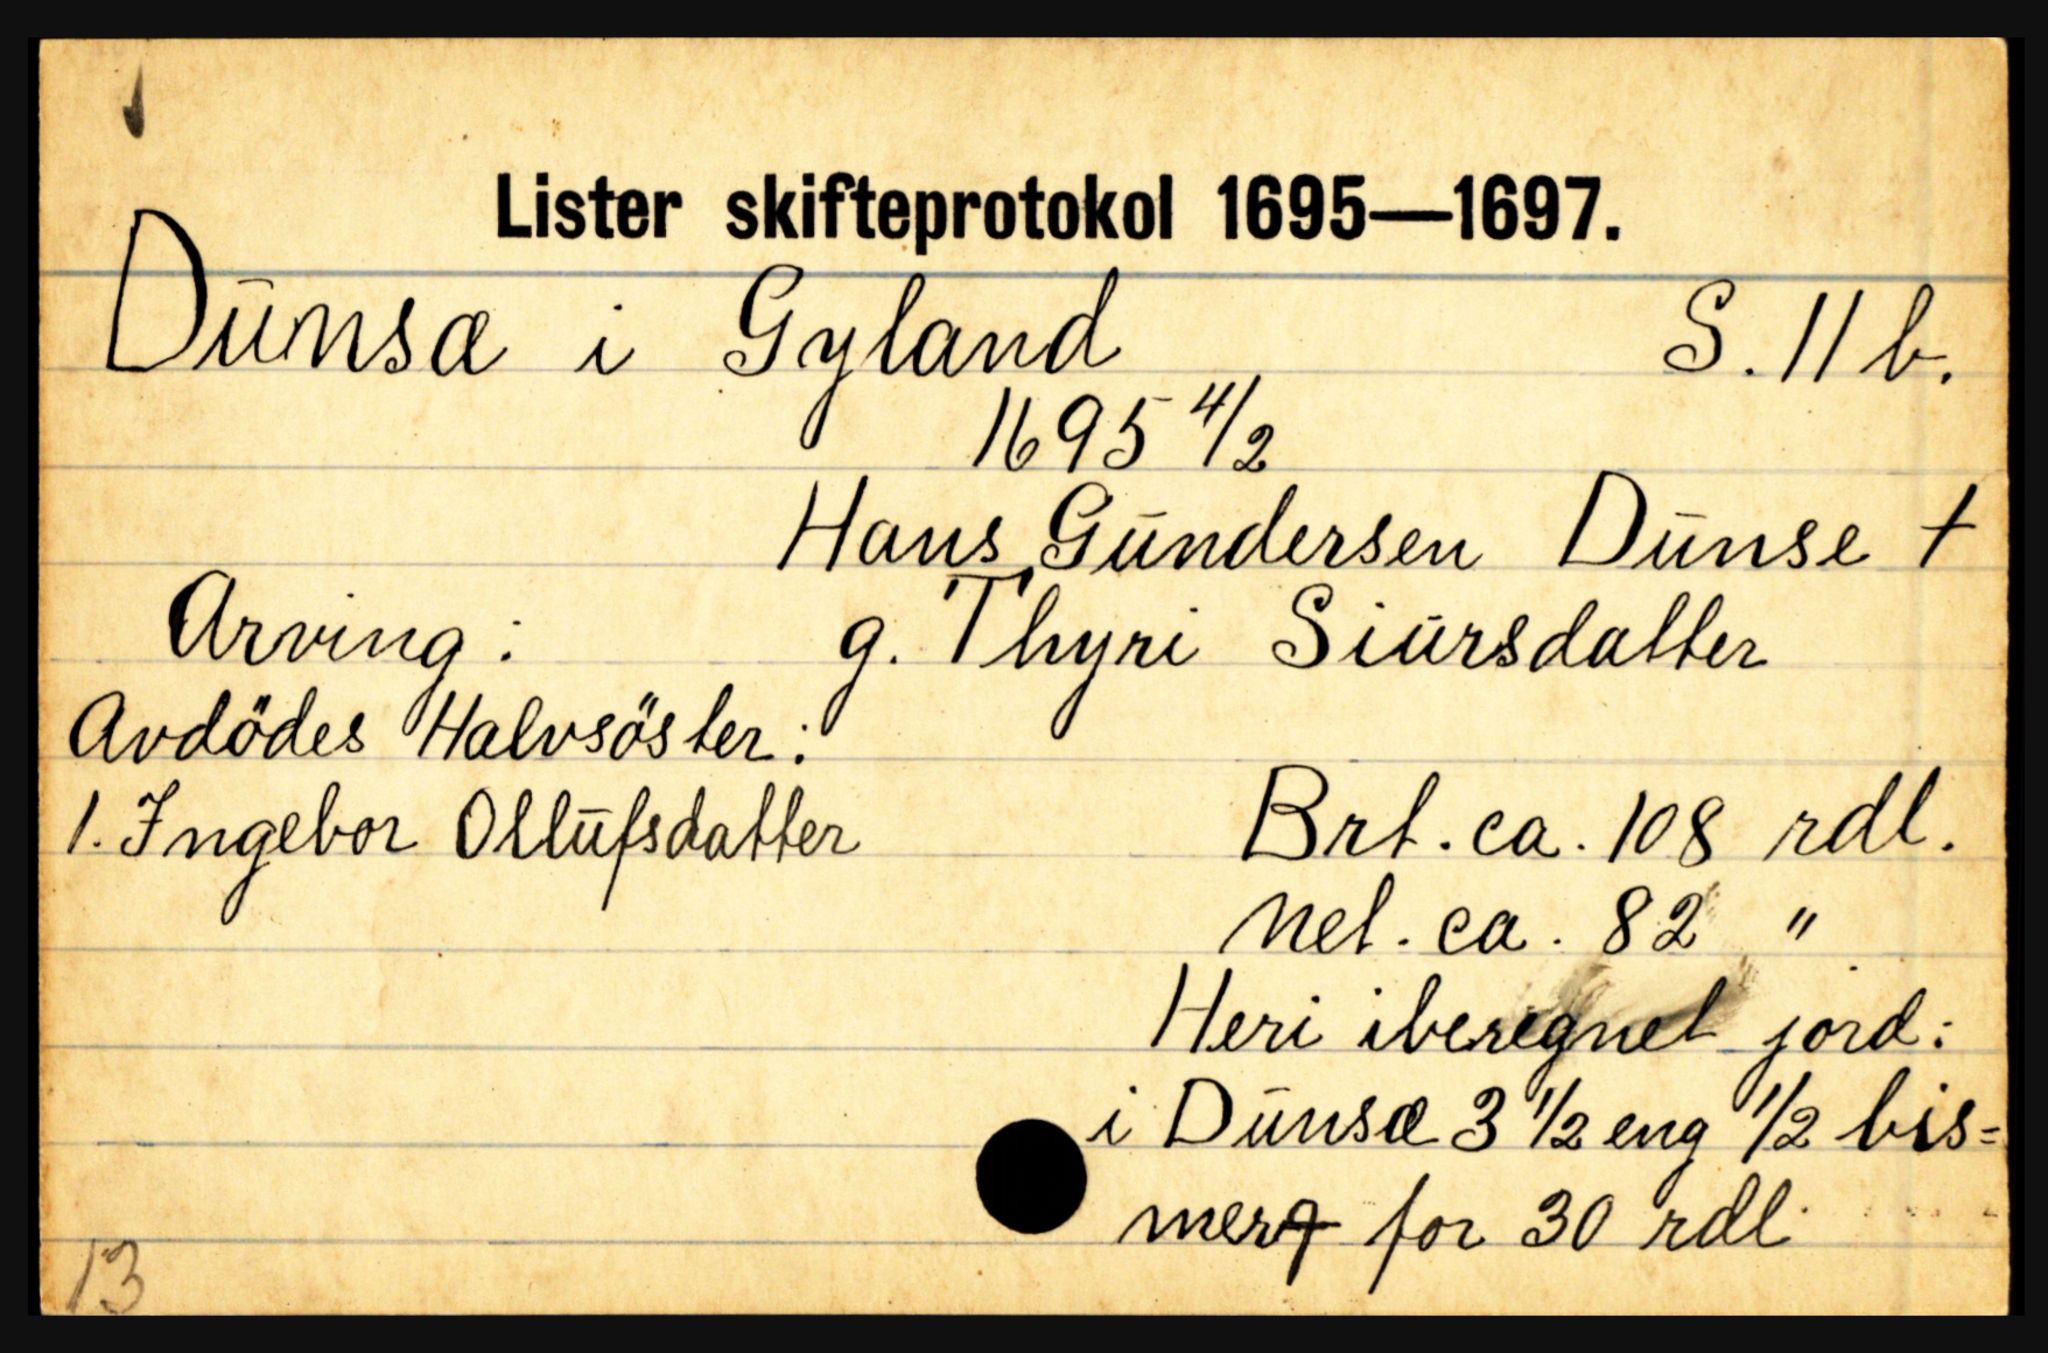 Lister skifteprotokol 1695—1697.
Dūnsæ i Gyland S. 11 b.
1695 4/2
Hans Gūndersen Dūnse +
Arving: g. Thyri Siūrsdatter
Avdödes Halvsöster:
1. Ingebor Ollūfsdatter Brt. ca. 108 rdl.
Net. ca. 82 "
Heri iberegnet jord:
i Dūnsæ 3 1/2 eng 1/2 bis=
merq for 30 rdl.
13